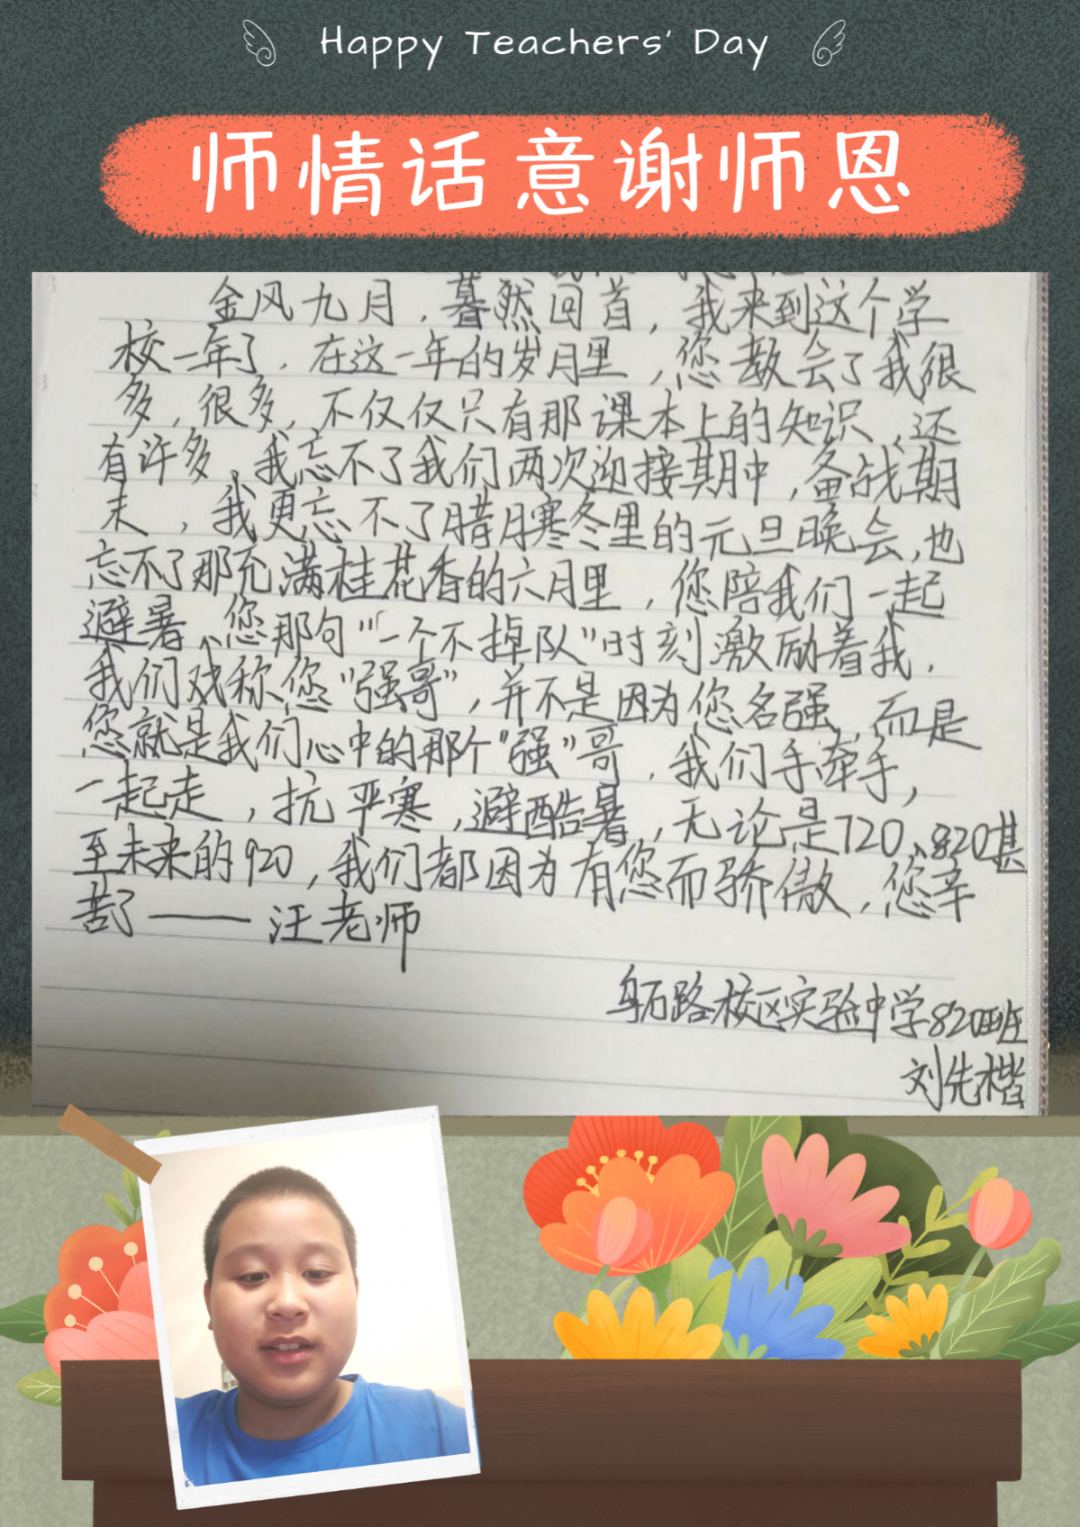 Happy Teachers' Day
师情话意谢师恩
金风九月，暮然回首，我来到这个学
校一年了．在这一年的岁月里，您教会了我很
多，很多，不仅仅只有那课本上的知识、还
有许多，我忘不了我们两次迎接期中，备战期
末，我更忘不了腊月寒冬里的元旦晚会，也
忘不了那充满桂花香的六月里，您陪我们一起
避暑、您那句"一个不掉队"时刻激励着我．
我们戏称您"强哥"，并不是因为您名强，而是
您就是我们心中的那个"强"哥，我们手牵手，
一起走，抗严寒，避酷暑，无论是720、820甚
至未来的920，我们都因为有您而骄傲，您辛
苦了——汪老师
石路校区实验中学820班
刘先楷